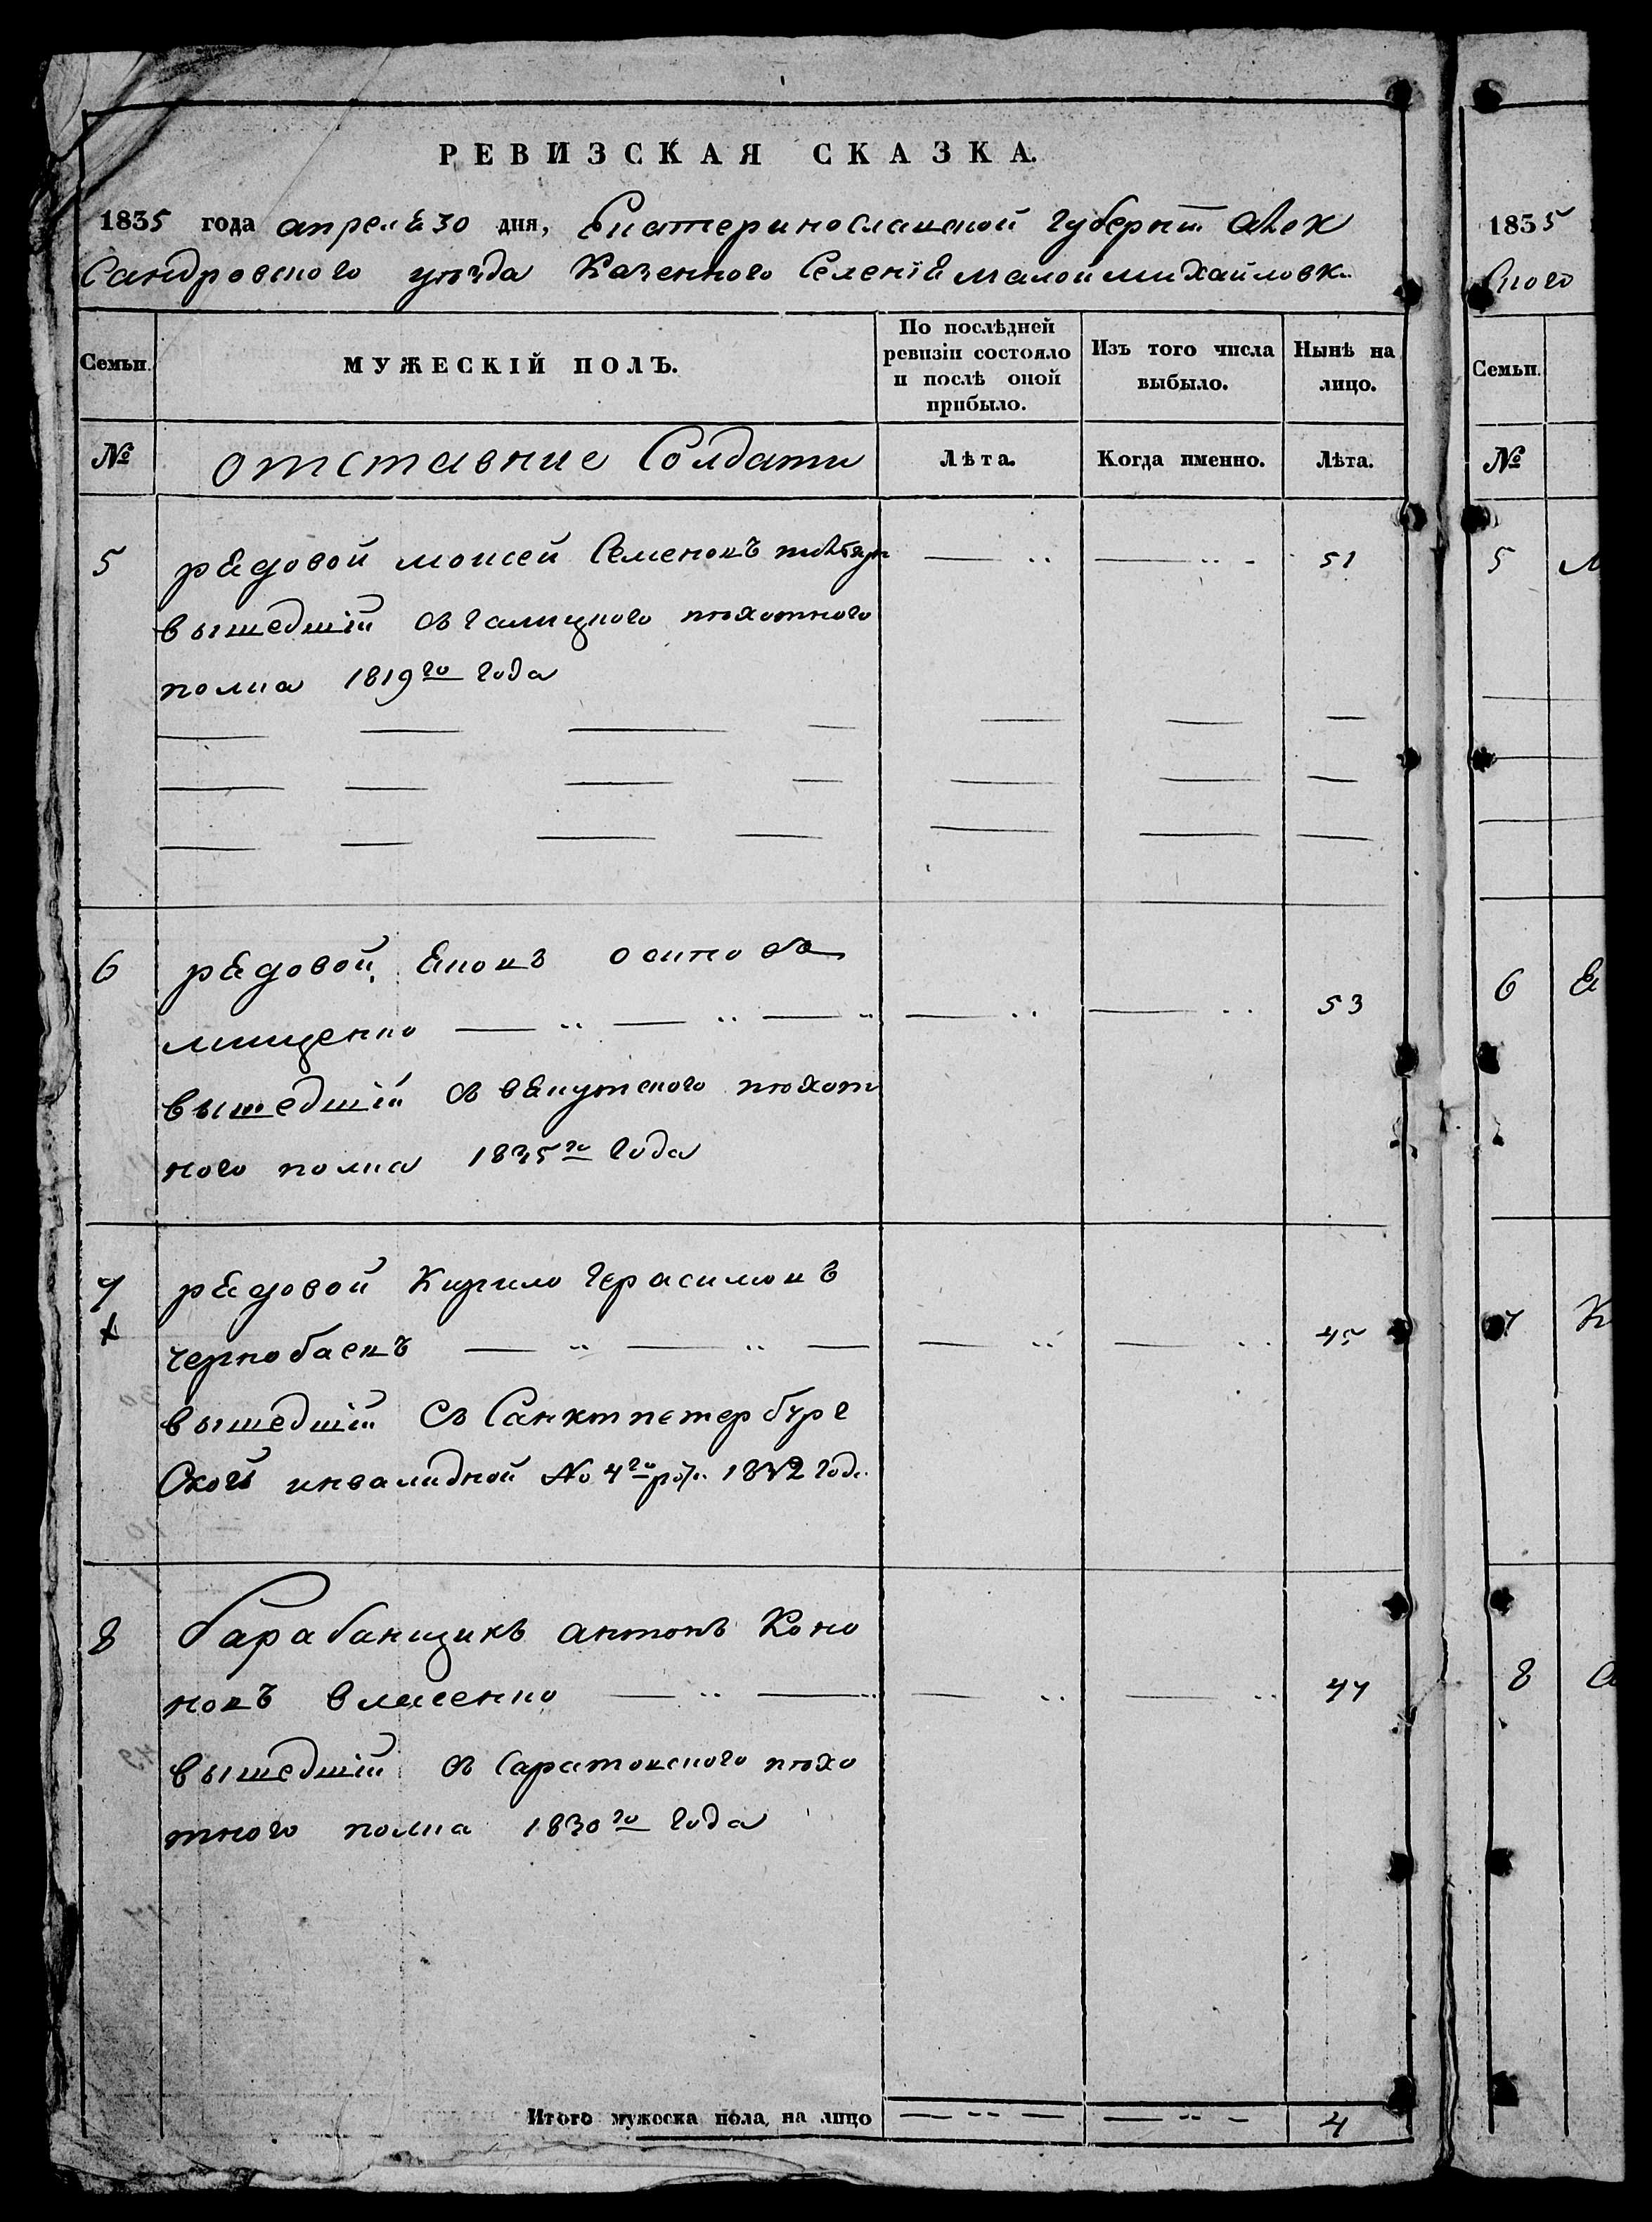 РЕВИЗСКАЯ СКАЗКА.
1835 года апреля 30 дня, Екатеринославской губернїи Алек
сандровского уезда Казенного Селенїя малой михайловки
Семьи.
МУЖЕСКІЙ ПОЛЪ.
По послѣдней ревизіи состояло и послѣ оной прибыло.
Изъ того числа выбыло.
Нынѣ на лицо.
№
отставние Солдати
Лѣта.
Когда именно.
Лѣта.
5 рядовой моисей Семеновъ — — 51
вышедшїй съ галицкого пехотного
полка 1819го года
6 рядовой Яковъ осиповъ
мищенко — — — — — 53
вышедшїй съ якутского пехот
ного полка 1835го года
7 рядовой Кирило герасимовъ
х чернобаевъ — — — — — 45
вышедшїй съ Санктпетербург
ской инвалидной № 4го роты 1832 года
8 барабанщикъ антонъ Коно
новъ власенко — — — — 47
вышедшїй съ саратовского пехо
тного полка 1830го года
Итого мужеска пола, на лицо — — — — 4
1835
ского
Семьи.
№
5 М
6 Я
7 К
8 а